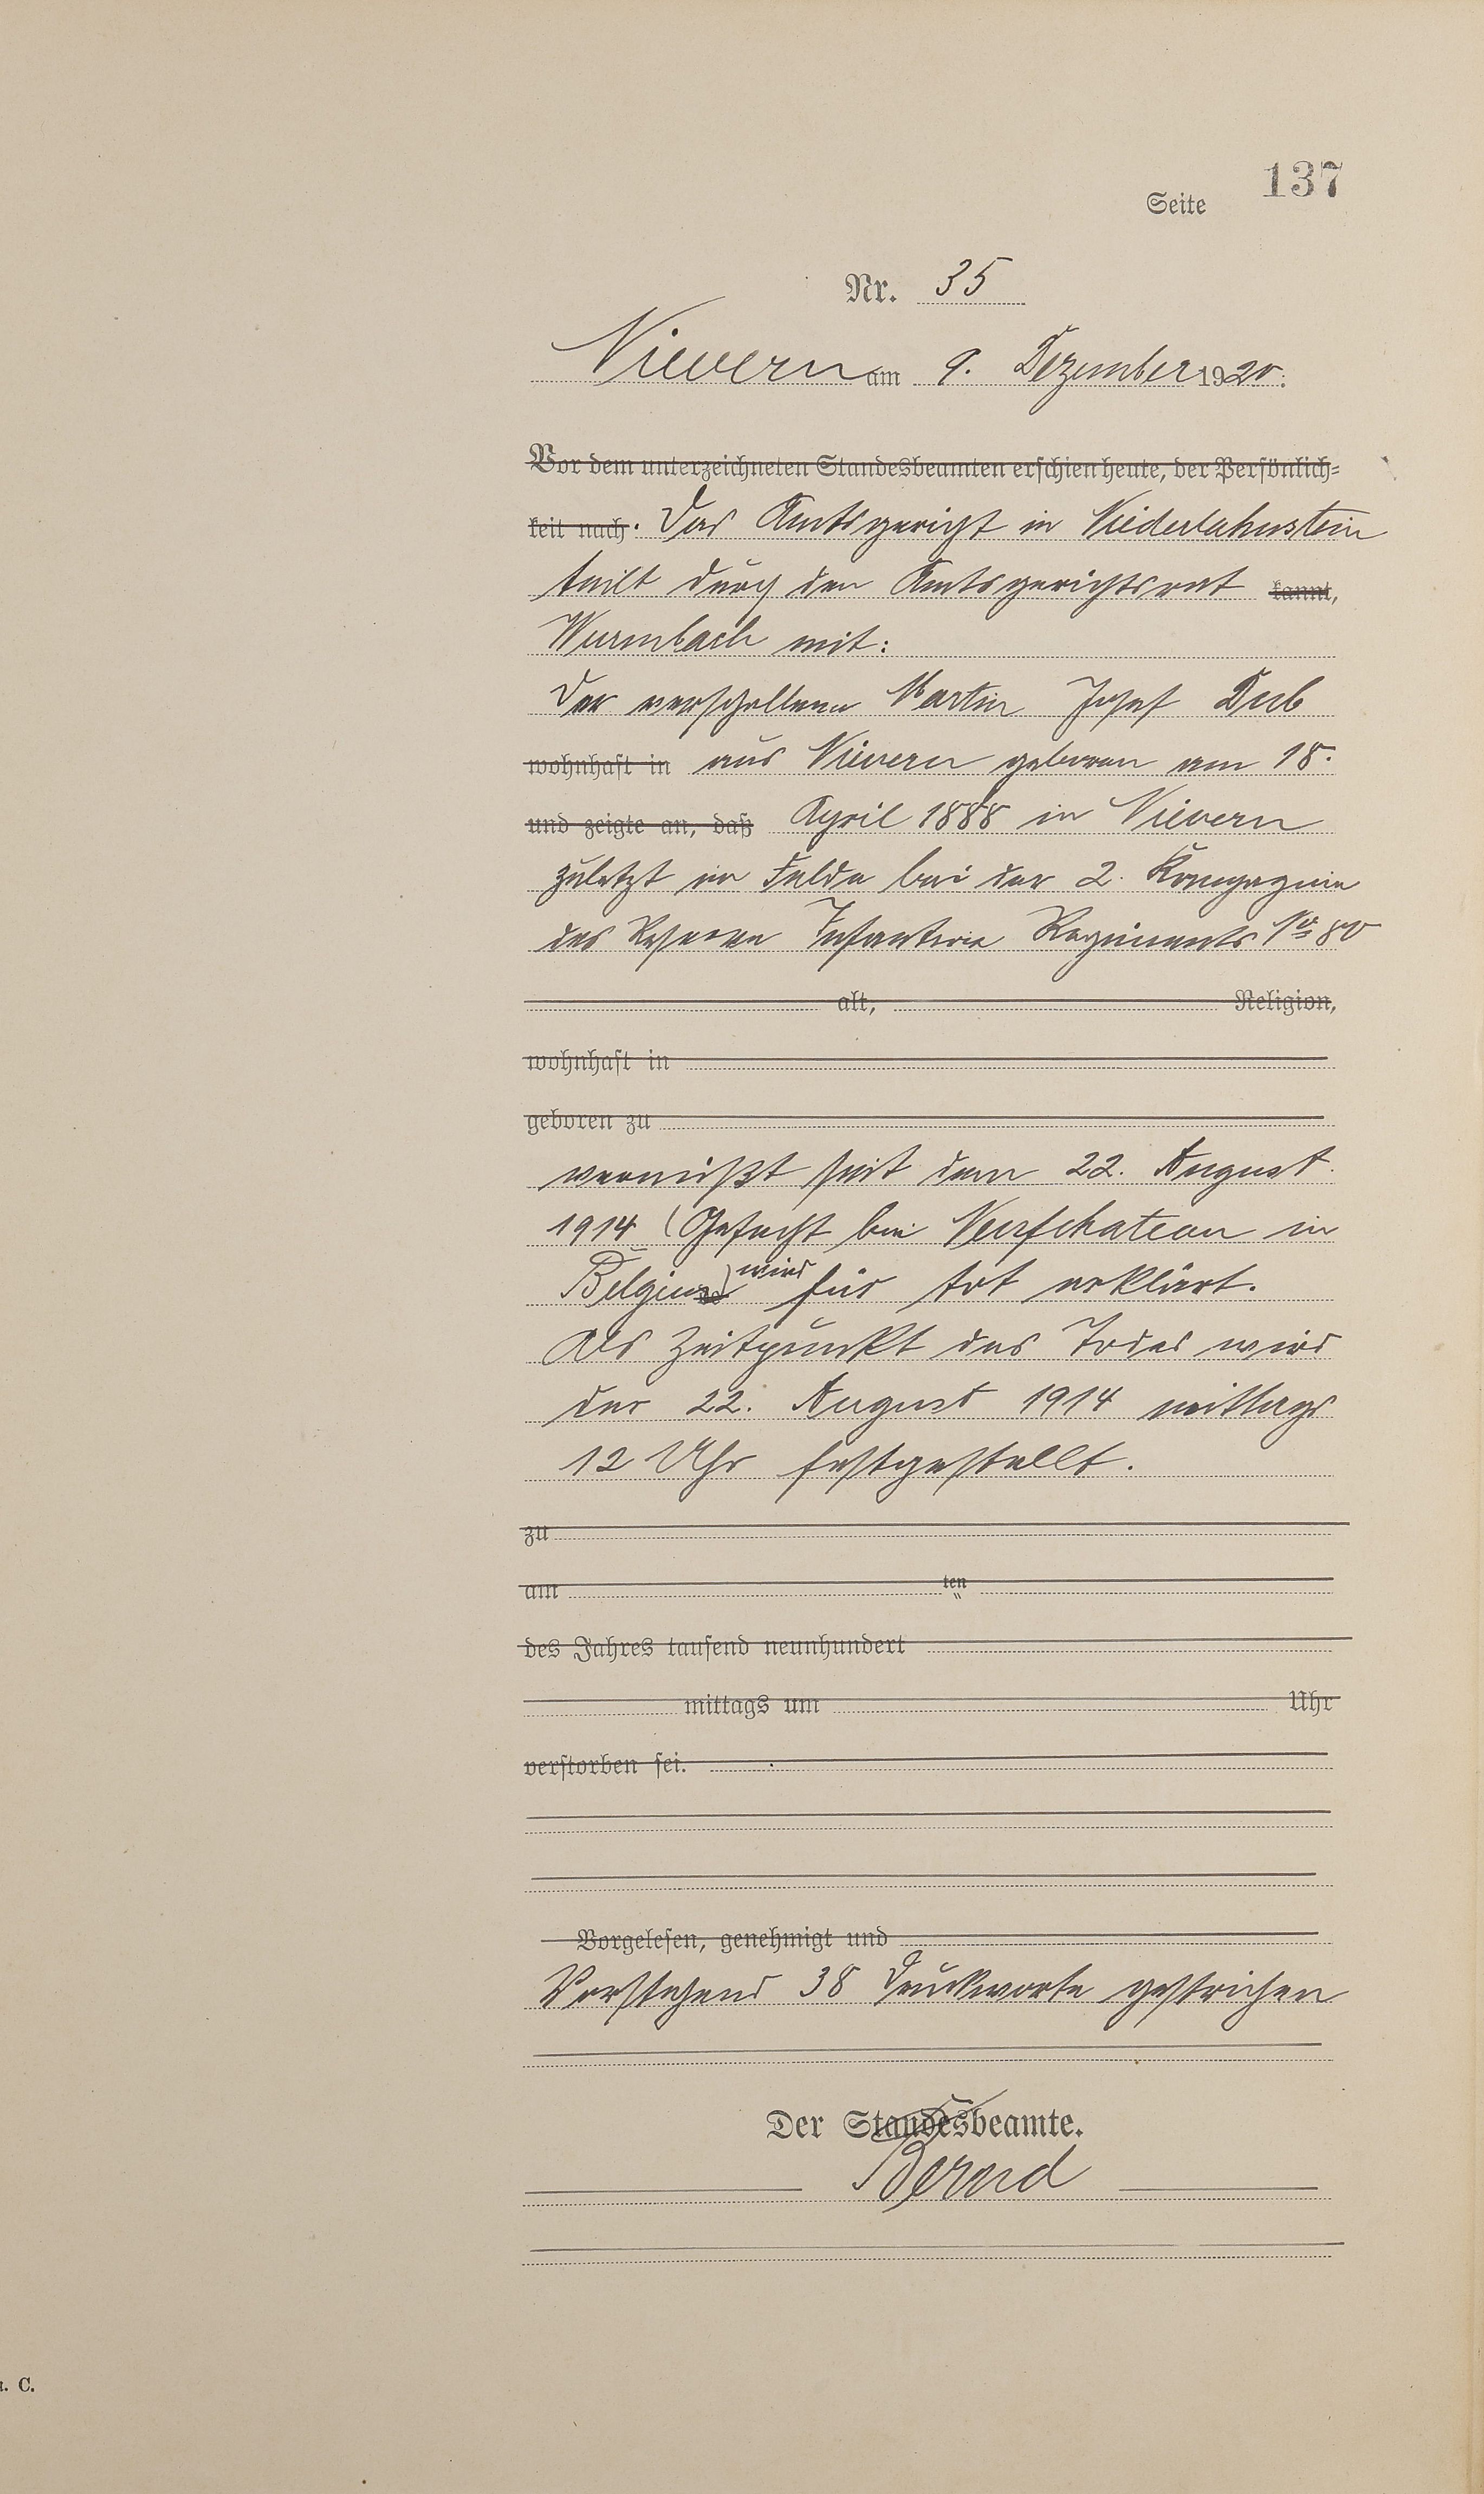 Seite 137
Nr. 35
Nievern am 9. Dezember 1920.
Vor dem unterzeichneten Standesbeamten erschien heute, der Persönlich-
keit nach. Das Amtsgericht in Niederlahnstein
teilt durch den Amtsgerichtsrat kannt,
Wurmbach mit:
Der verschollene Martin Josef Dub
wohnhaft in aus Nievern geboren am 18.
und zeigte an, daß April 1888 in Nievern
zuletzt im Felde bei der 2. Kompagnie
des Reserve Infanterie Regiments No 80
alt, Religion,
wohnhaft in
geboren zu
vermißt seit dem 22. August
1914 (Gefecht bei Neufchateau in
Belgien) wird für tot erklärt.
Als Zeitpunkt des Todes wird
der 22. August 1914 mittags
12 Uhr festgestellt.
zu
am ten
des Jahres tausend neunhundert
mittags um Uhr
verstorben sei.
Vorgelesen, genehmigt und
Vorstehend 38 Druckworte gestrichen
Der Standesbeamte.
Bernd
. C.